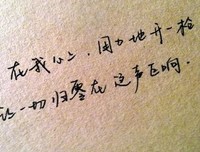 在我心上，用力地开一枪
让一切归零在这声巨响．